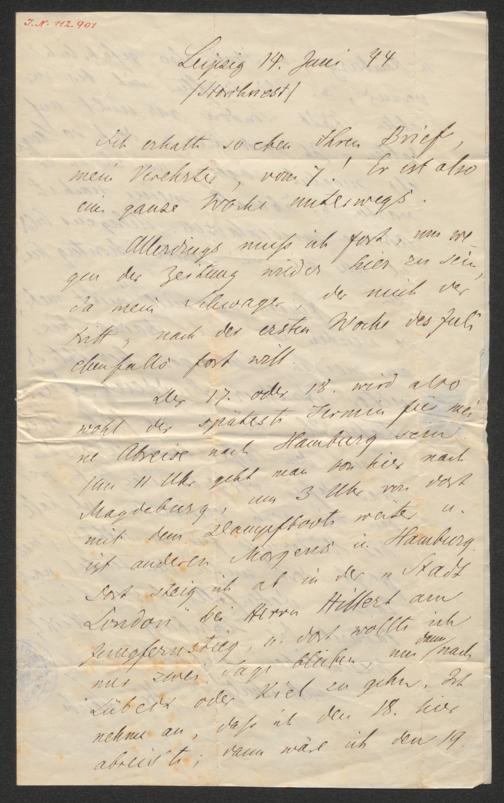 J. N. 112.901
Leipzig 14. Juni 44
Ich erhalte so eben Ihren Brief,
mein Verehrter, vom 7.! Er ist also
eine ganze Woche unterwegs.
Allerdings muß ich fort, um we-
gen der Zeitung wieder hier zu sein,
da mein Schwager, der mich ver
tritt, nach der ersten Woche des Juli
ebenfalls fort will
Der 17. oder 18. wird also
wohl der späteste Termin für mei
ne Abreise nach Hamburg sein
Um 11 Uhr geht man von hier nach
Magdeburg, um 3 Uhr von dort
mit dem Dampfboote weiter u.
ist anderen Morgens in Hamburg.
Dort steig ich ab in der „Stadt
London" bei Herrn Hillert am
Jungfernstieg, u. dort wollte ich
nur zwei Tage bleiben, um dann nach
Lübeck oder Kiel zu gehen. Ich
nehme an, daß ich den 18. hier
abreiste; dann wäre ich den 19.